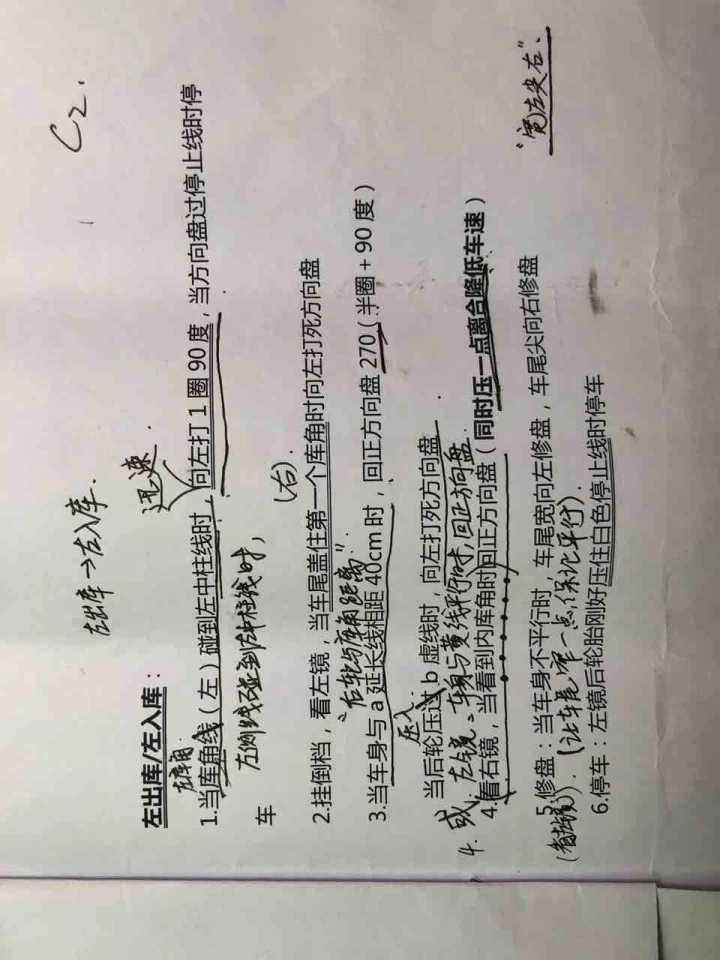 C2.
左出库→左入库.
左出库/左入库：
左库角 迅速
1.当库角线（左）碰到左中柱线时，向左打1圈90度，当方向盘过停止线时停
车
左侧线碰到左中柱线时，
（右）.
2.挂倒档，看左镜，当车尾盖住第一个库角时向左打死方向盘
"后轮与库角距离"
3.当车身与a延长线相距40cm时，回正方向盘270（半圈+90度）
压入
当后轮压过b虚线时，向左打死方向盘.
4. 或 左镜：车身与黄线平行时，回正方向盘.
4.看右镜，当看到内库角时回正方向盘（同时压一点离合降低车速）
"宽左尖右"、
5.修盘：当车身不平行时，车尾宽向左修盘，车尾尖向右修盘
（让车尾窄一点，保证平行）.
6.停车：左镜后轮胎刚好压住白色停止线时停车